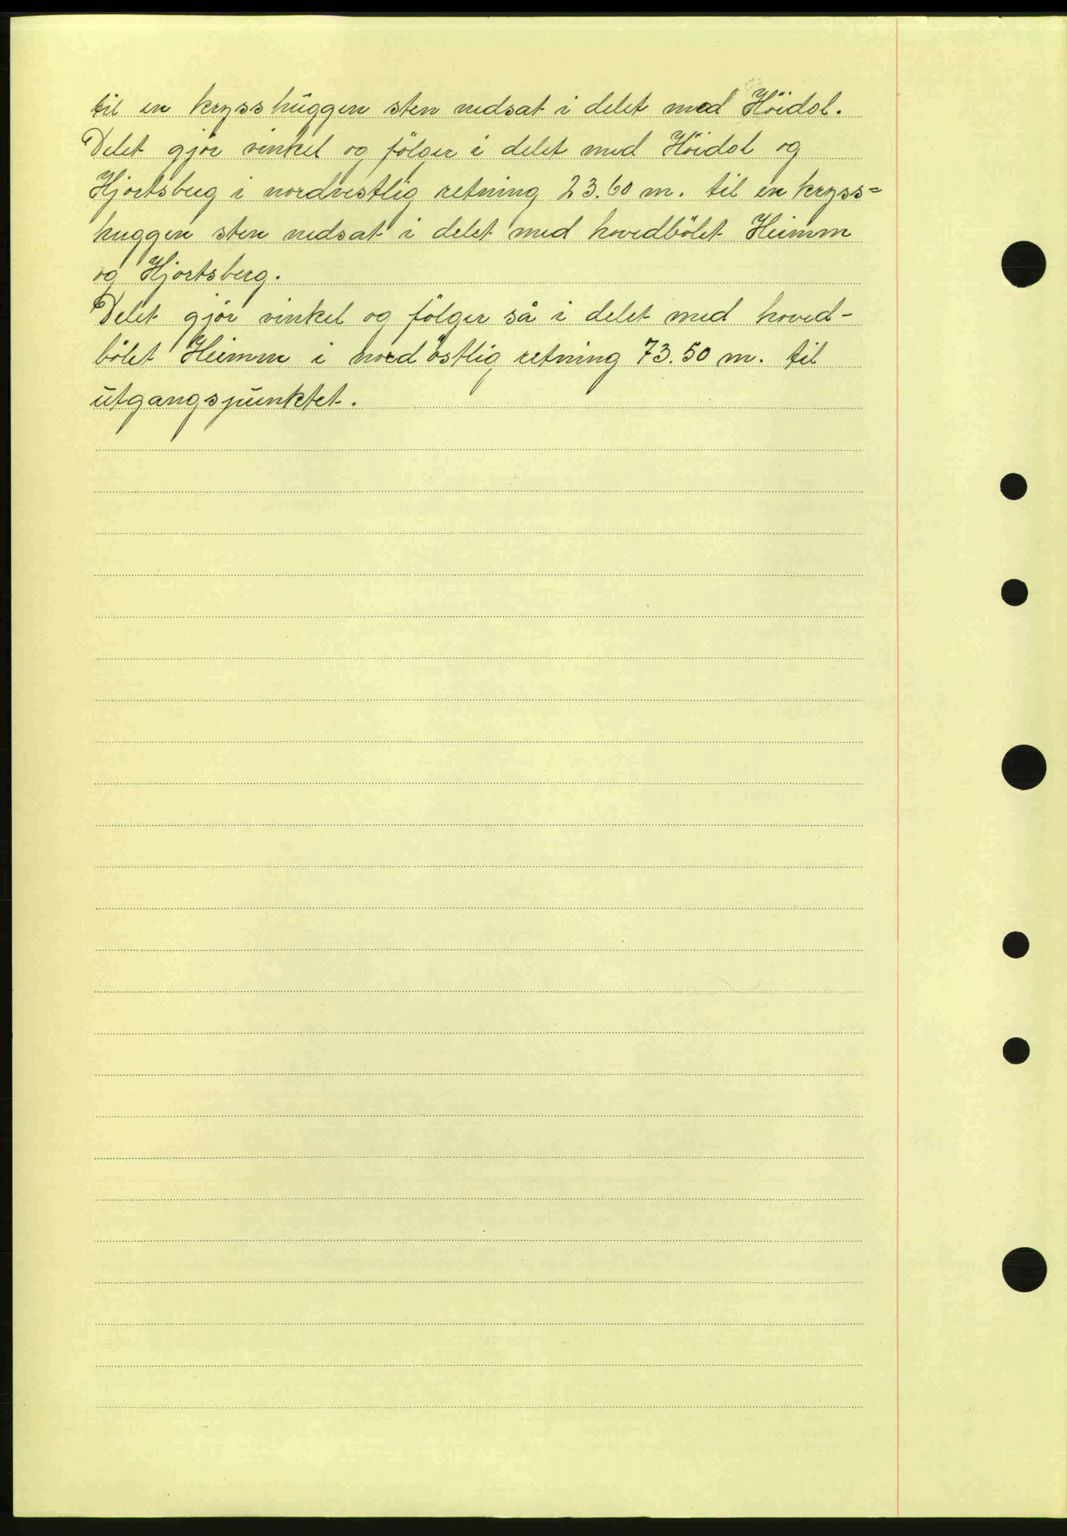 til en krysshuggen sten nedsat i delet med Höidal.
Delet gjör vinkel og fölger i delet med Höidal og
Hjortsberg i nordvestlig retning 23.60 m. til en kryss=
huggen sten nedsat i delet med hovedbölet Heimm
og Hjortsberg.
Delet gjör vinkel og fölger så i delet med hoved-
bölet Heimm i nordöstlig retning 73.50 m. til
utgangspunktet.